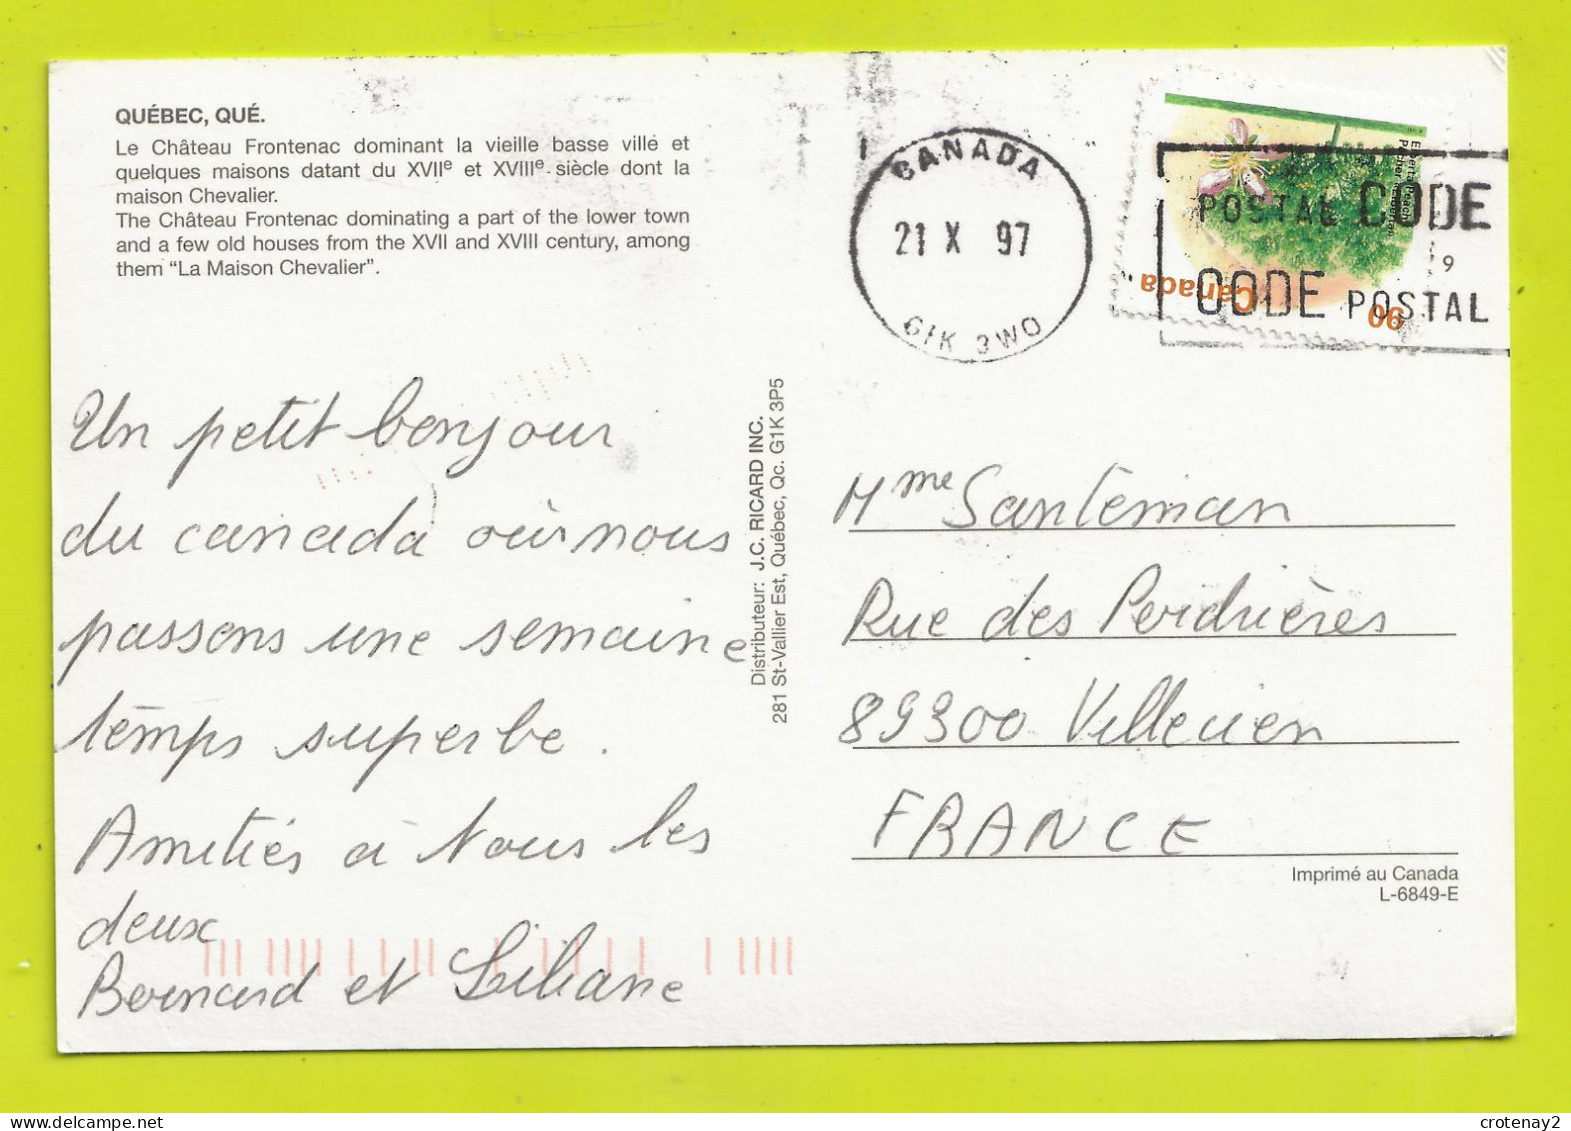 QUÉBEC, QUÉ.
Le Château Frontenac dominant la vieille basse ville et
quelques maisons datant du XVIIe et XVIIIe siècle dont la
maison Chevalier.
The Château Frontenac dominating a part of the lower town
and a few old houses from the XVII and XVIII century, among
them “La Maison Chevalier”.
Un petit bonjour
du canada où nous
passons une semaine
temps superbe.
Amitiés à tous les
deux
Bernard et Liliane
Distributeur: J.C. RICARD INC.
281 St-Vallier Est, Québec, Qc. G1K 3P5
CANADA
21 X 97
G1K 3W0
Elberta Peach
Pêcher
Canada
90
POSTAL CODE
CODE POSTAL
9
Mme Santeman
Rue des Perdrières
89300 Villecien
FRANCE
Imprimé au Canada
L-6849-E
crotenay2